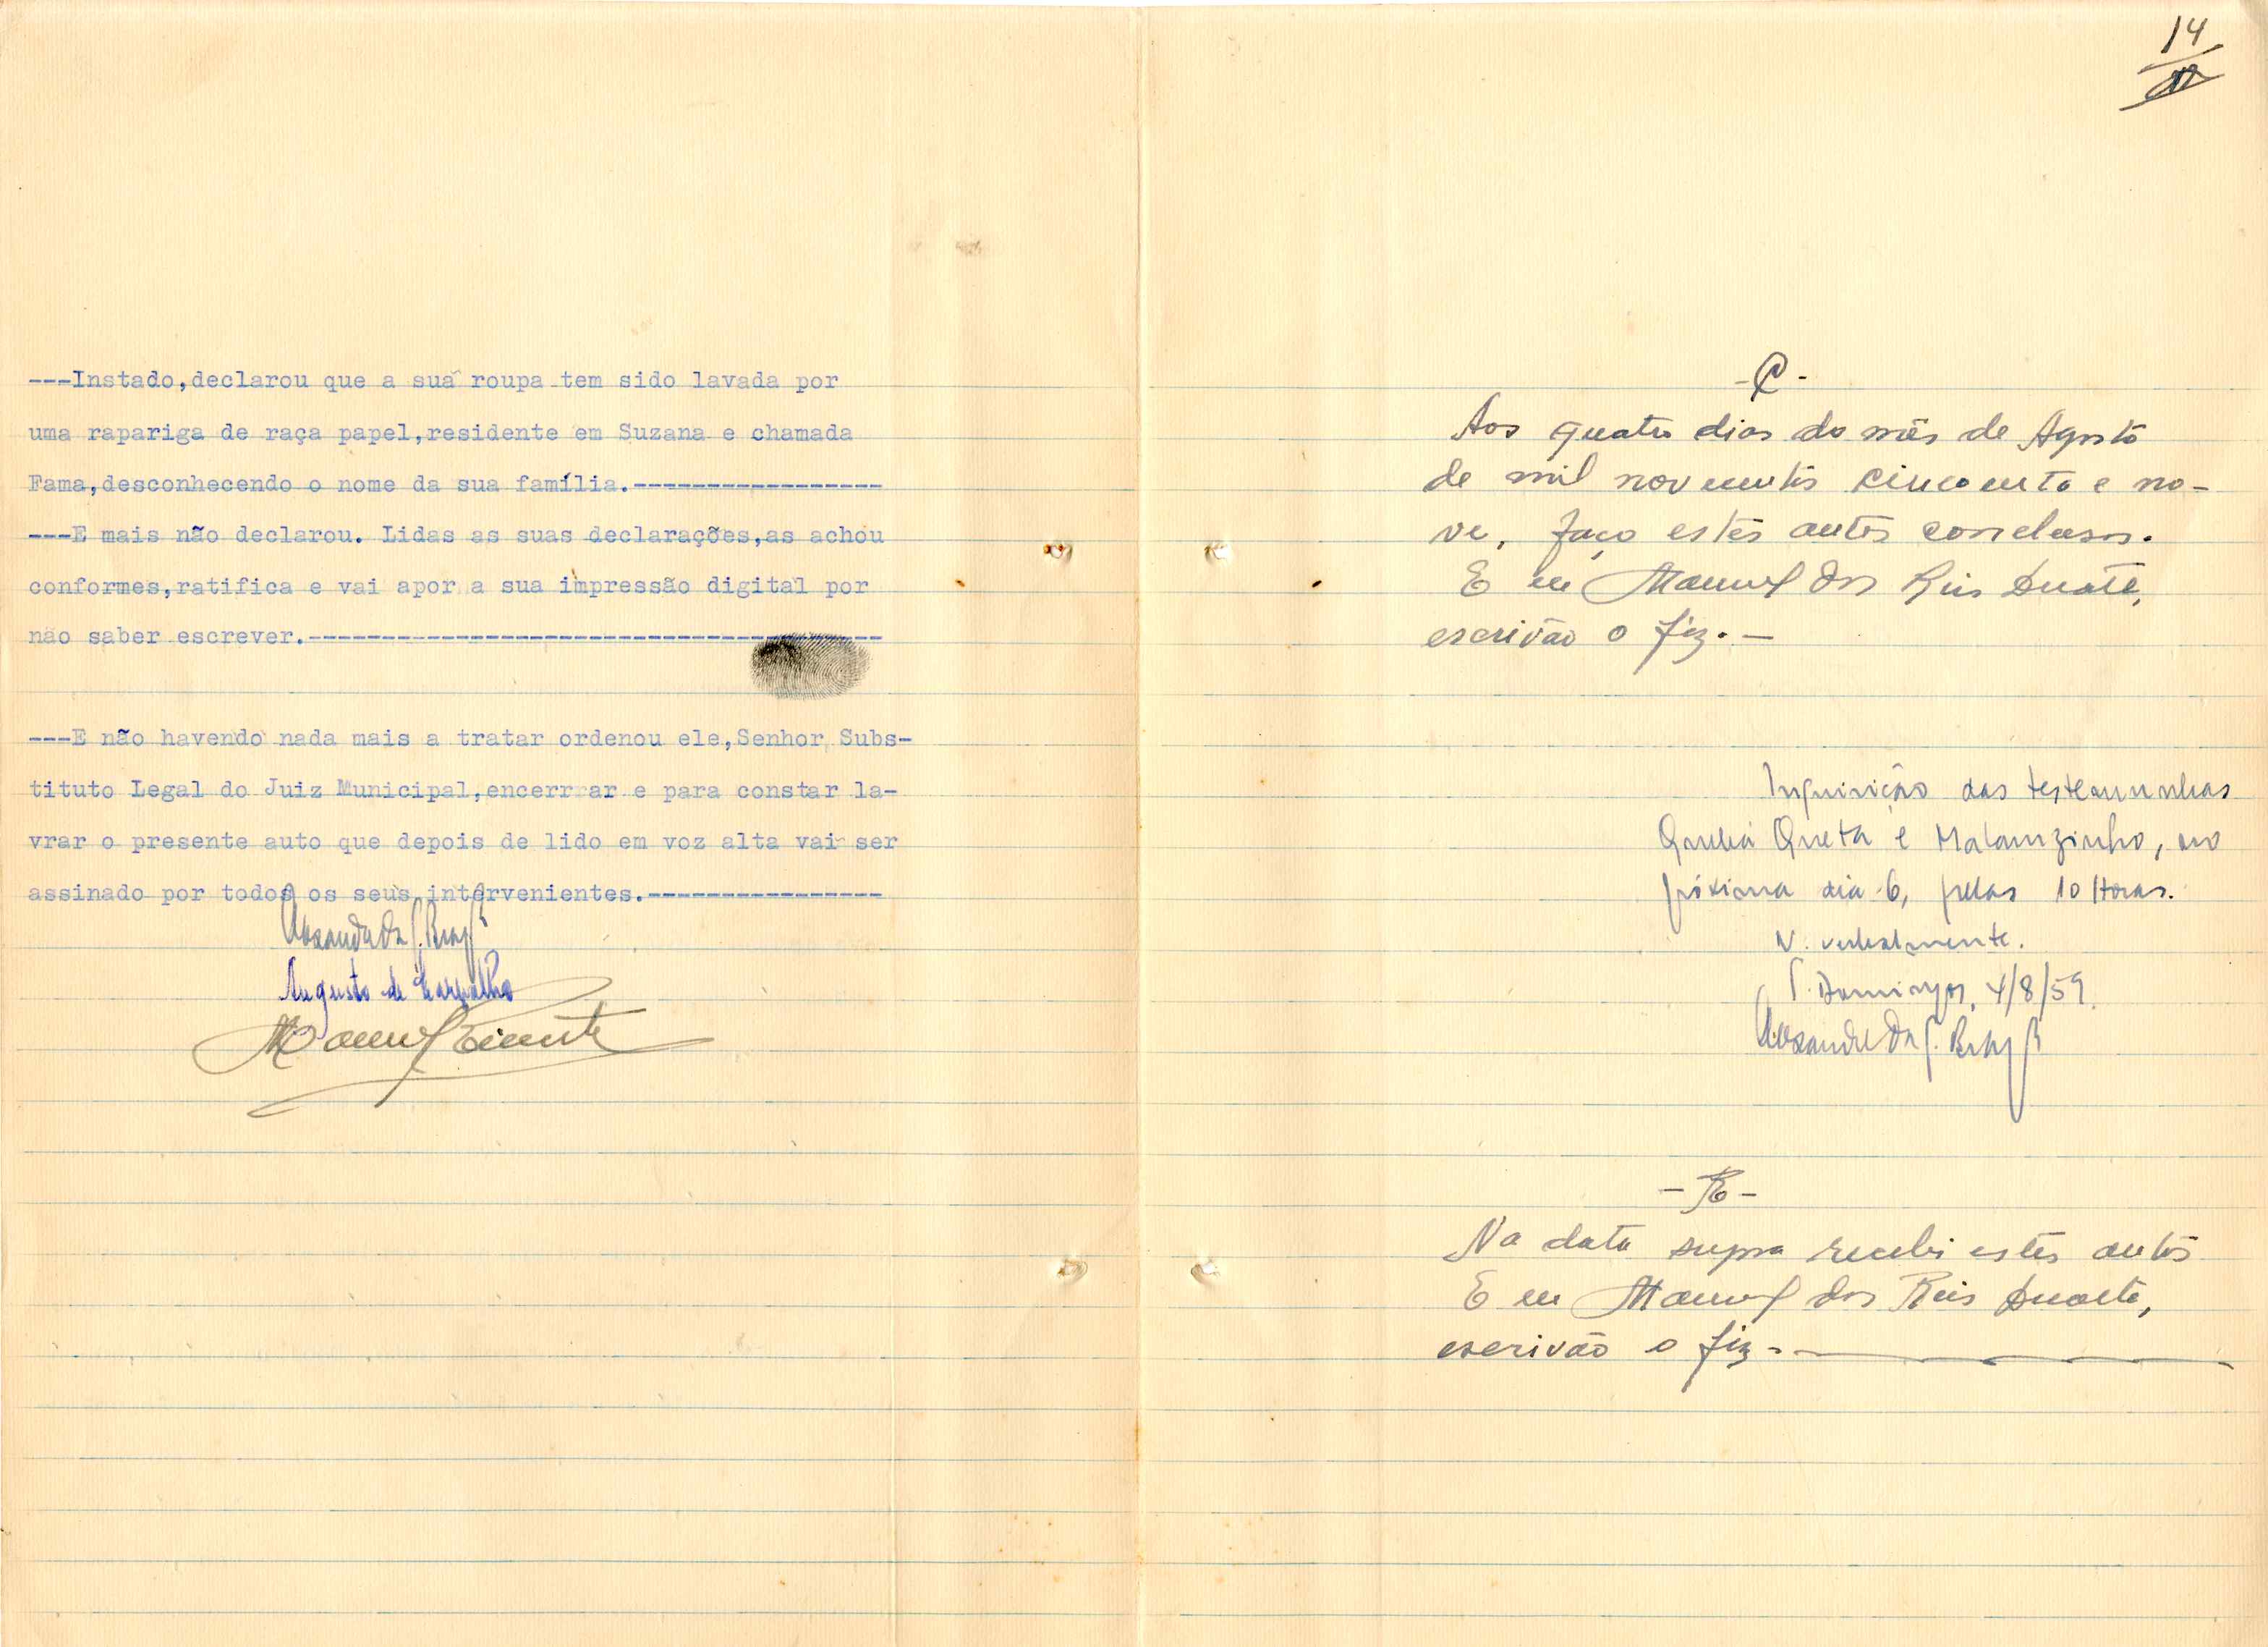 ---Instado,declarou que a sua roupa tem sido lavada por
uma rapariga de raça papel,residente em Suzana e chamada
Fama,desconhecendo o nome da sua família.-----------------
---E mais não declarou. Lidas as suas declarações,as achou
conformes,ratifica e vai apor a sua impressão digital por
não saber escrever.---------------------------------------
---E não havendo nada mais a tratar ordenou ele,Senhor Subs-
tituto Legal do Juiz Municipal,encerrrar e para constar la-
vrar o presente auto que depois de lido em voz alta vai ser
assinado por todos os seus intervenientes.----------------
Augusto de Carvalho
Manuel Vicente
14
-C-
Aos quatro dias do mês de Agosto
de mil novecentos cincoenta e no-
ve, faço estes autos conclusos.
E eu Manuel dos Reis Duarte,
escrivão o fiz.—
Inquirição das testemunhas
Queta e Malamzinho, no
próximo dia 6, pelas 10 Horas.
N. verbalmente.
S. Domingos, 4/8/59.
-R-
Na data supra recebi estes autos
E eu Manuel dos Reis Duarte,
escrivão o fiz.—